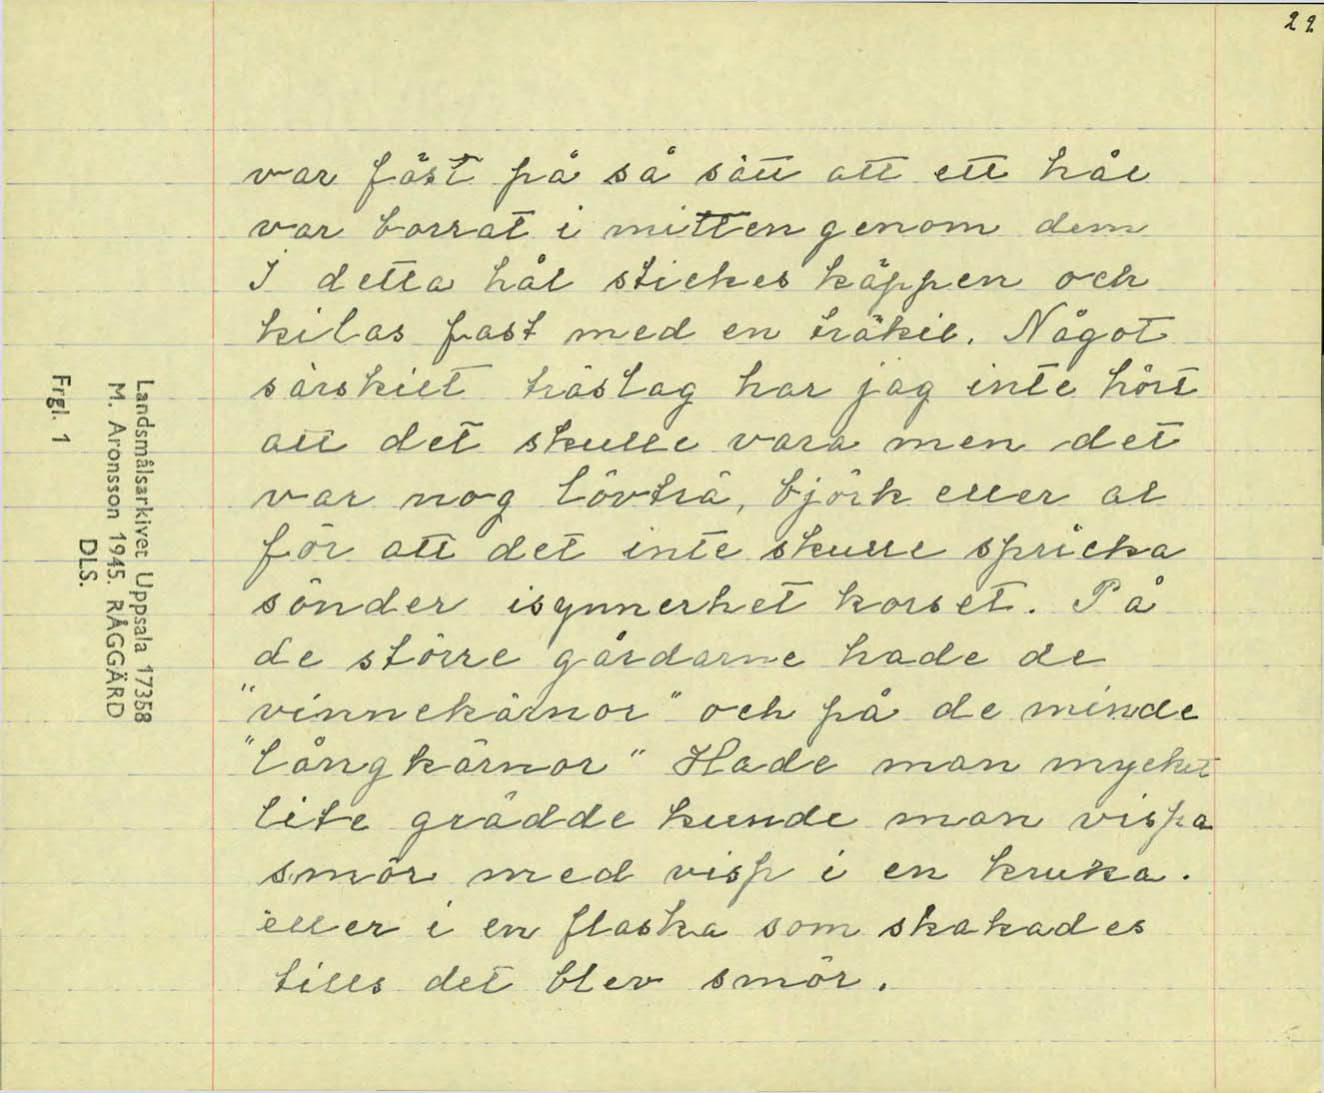 22
var fäst på så sätt att ett hål
var borrat i mitten genom dem
I detta hål stickes käppen och
kilas fast med en träkil. Något
särskilt träslag har jag inte hört
att det skulle vara men det
var nog lövträ, björk eller al
för att det inte skulle spricka
sönder isynnerhet korset. På
de större gårdarne hade de
"vinnekärnor" och på de minde
"långkärnor" Hade man mycket
lite grädde kunde man vispa
smör med visp i en kruka.
eller i en flaska som skakades
tills det blev smör.
Landsmålsarkivet Uppsala 17358
M. Aronsson 1945. RÅGGÄRD
DLS.
Frgl. 1